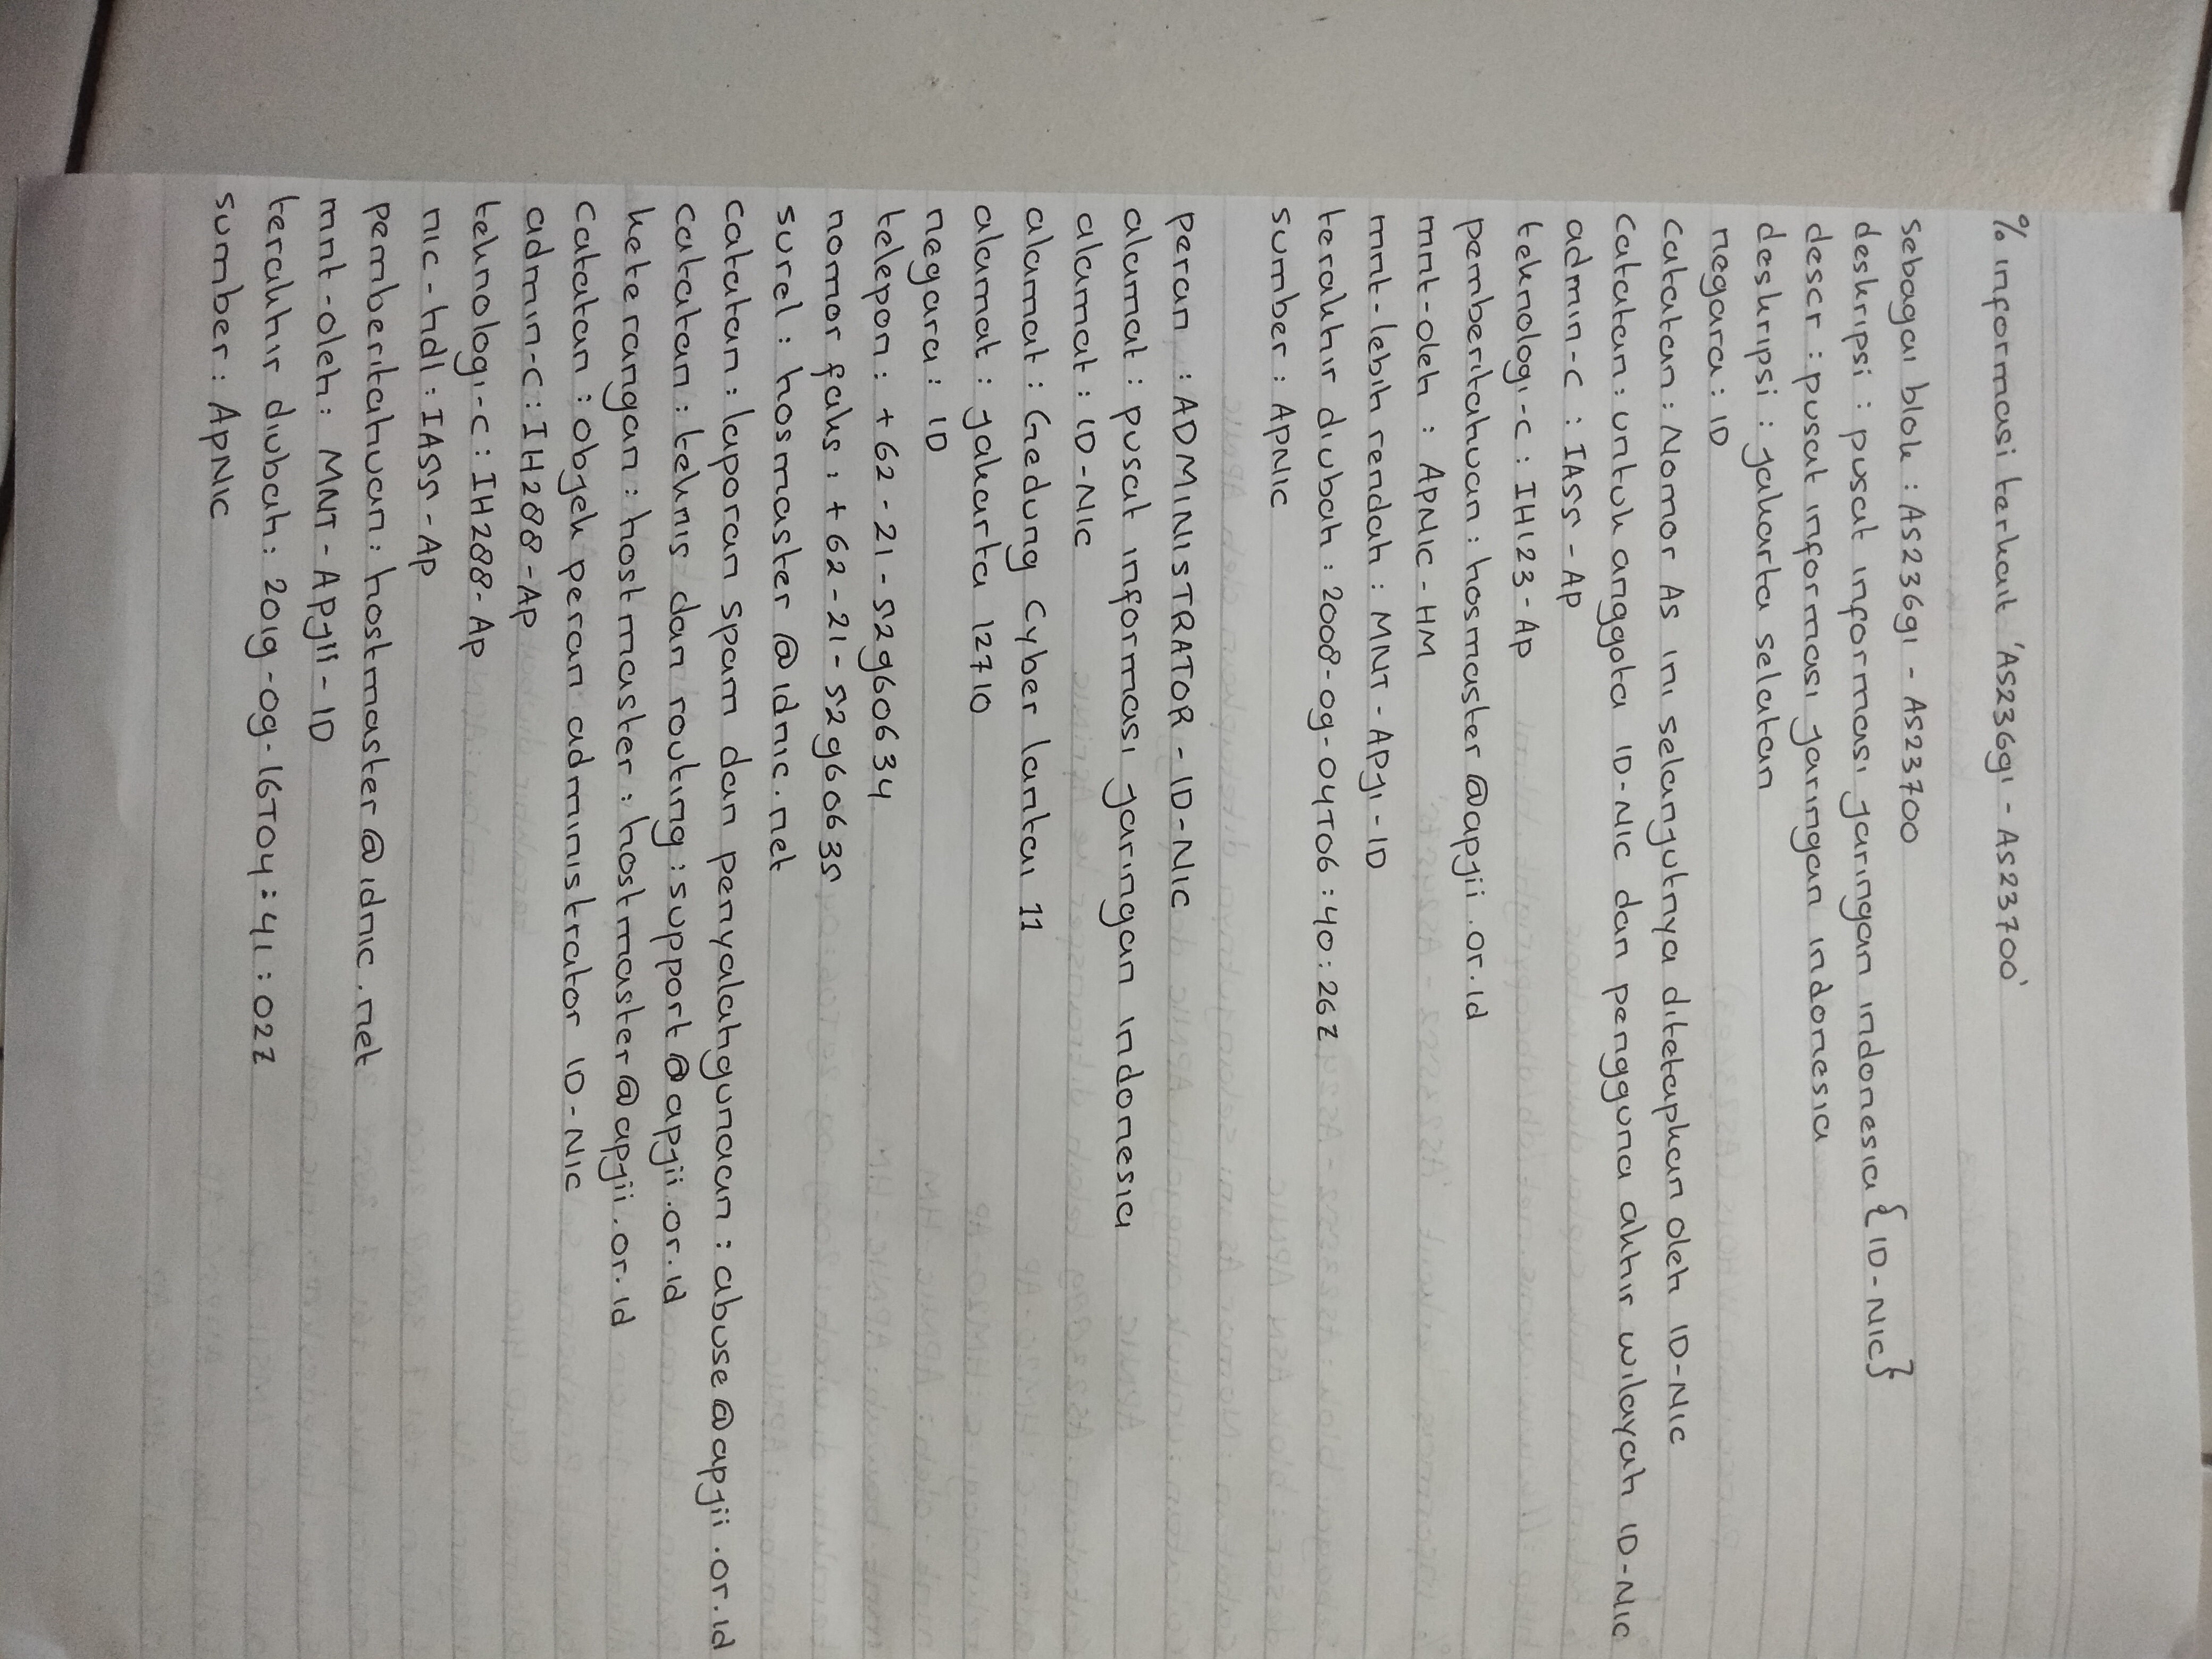 % informasi terkait 'AS23691 - AS23700'
sebagai blok : AS23691 - AS23700
deskripsi : pusat informasi jaringan indonesia {ID-NIC}
descr : pusat informasi jaringan indonesia
deskripsi : jakarta selatan
negara : ID
catatan : Nomor AS ini selanjutnya ditetapkan oleh ID-NIC
catatan : untuk anggota ID-NIC dan pengguna akhir wilayah ID-NIC
admin-c : IA55-AP
teknologi-c : IH123-AP
pemberitahuan : hosmaster@apjii.or.id
mnt-oleh : APNIC-HM
mnt-lebih rendah : MNT-APJI-ID
terakhir diubah : 2008-09-04T06:40:26Z
sumber : APNIC
peran : ADMINISTRATOR-ID-NIC
alamat : pusat informasi jaringan indonesia
alamat : ID-NIC
alamat : Gedung Cyber lantai 11
alamat : jakarta 12710
negara : ID
telepon : +62-21-52960634
nomor faks : +62-21-52960635
surel : hosmaster@idnic.net
catatan : laporan spam dan penyalahgunaan : abuse@apjii.or.id
catatan : teknis dan routing : support@apjii.or.id
keterangan : hostmaster : hostmaster@apjii.or.id
catatan : objek peran administrator ID-NIC
admin-c : IH288-AP
teknologi-c : IH288-AP
nic-hdl : IA55-AP
pemberitahuan : hostmaster@idnic.net
mnt-oleh : MNT-APJII-ID
terakhir diubah : 2019-09-16T04:41:02Z
sumber : APNIC